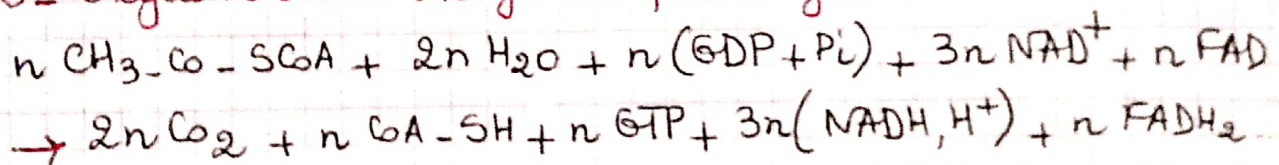 n CH3-CO-SCoA + 2n H2O + n (GDP+Pi) + 3n NAD+ + n FAD
→ 2n CO2 + n CoA-SH + n GTP + 3n( NADH, H+) + n FADH2